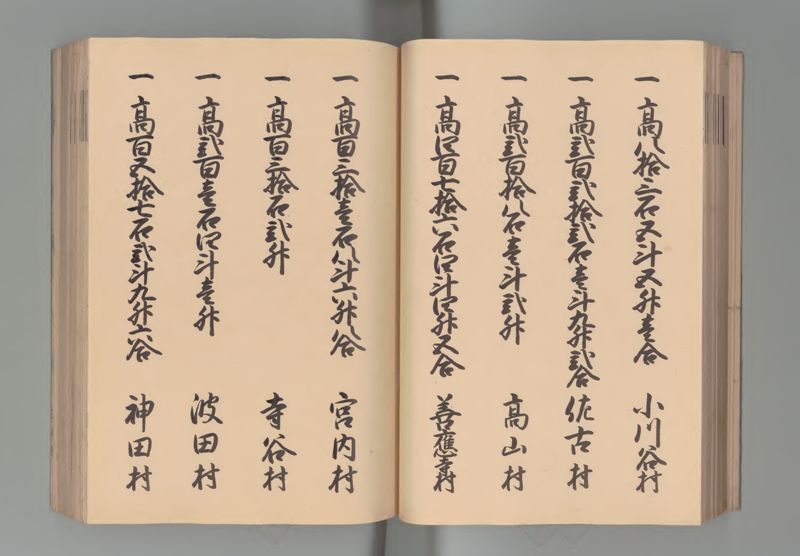 一 高八拾三石五斗五升壱合 小川谷村
一 高弐百弐拾弐石壱斗九升弐合 佐古村
一 高弐百拾八石壱斗弐升 高山村
一 高四百七拾六石四斗四升五合 善應寺村
一 高百三拾壱石八斗六升八合 宮内村
一 高百三拾石弐升 寺谷村
一 高弐百壱石四斗壱升 波田村
一 高百五拾七石弐斗九升六合 神田村